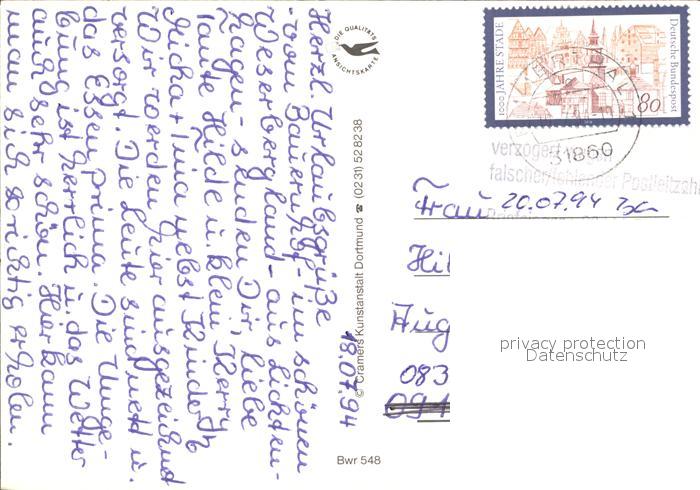 Herzl. Urlaubsgrüße
vom Bauernhof - im schönen
Weserbergland - aus Lichten-
hagen - senden Dir liebe
Tante Hilde u. klein Kerry
Micha + Ina nebst Kindern
Wir werden hier ausgezeichnet
versorgt. Die Leute sind nett u.
das Essen prima. Die Umge-
bung ist herrlich u. das Wetter
auch sehr schön. Hier kann
man sich so richtig erholen.
18.07.94
DIE QUALITÄTS
ANSICHTSKARTE
© Cramers Kunstanstalt Dortmund ☎ (0231) 528238
Bwr 548
1000 JAHRE STADE
Deutsche Bundespost
80
31860
verzögert
falscher/fehlender Postleitzahl
20.07.94
Frau
Hil
Aug
083
091
privacy protection
Datenschutz